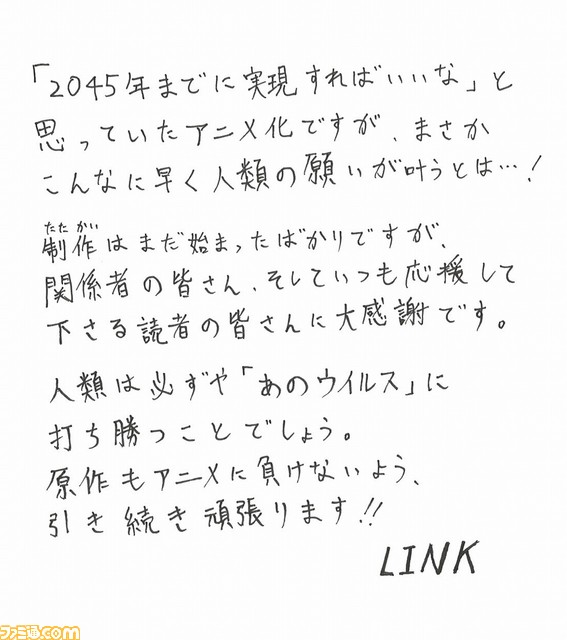 「2045年までに実現すればいいな」と
思っていたアニメ化ですが、まさか
こんなに早く人類の願いが叶うとは…！
たたかい
制作はまだ始まったばかりですが、
関係者の皆さん、そしていつも応援して
下さる読者の皆さんに大感謝です。
人類は必ずや「あのウイルス」に
打ち勝つことでしょう。
原作もアニメに負けないよう、
引き続き頑張ります!!
LINK
ファミ通.com